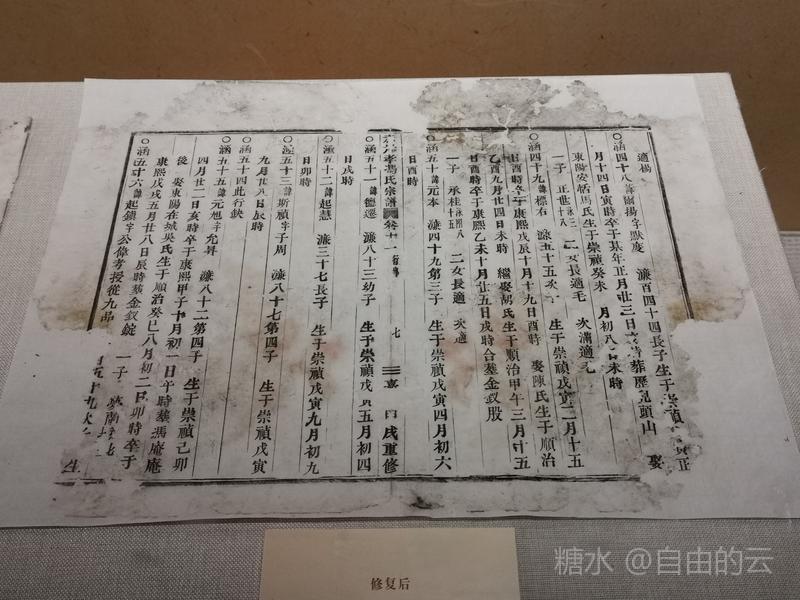 適楊
○涵四十八諱爾揚字默慶 濂百四十四長子生于崇禎 正
月十四日寅時卒于某年正月廿三日 時葬歷見頭山 娶
東陽安恬馬氏生于崇禎癸未 月初八日未時
一子 正世十八 二女長適毛 次滿適
○涵四十九諱標右 濂五十五次子 生于崇禎戊寅二月十五
日酉時卒于康熙戊辰十月十九日酉時 娶陳氏生于順治
乙酉九月廿四日未時 繼娶胡氏生于順治甲午三月廿五
日酉時卒于康熙乙未十月廿五日戌時合墓金釵股
一子 承桂 二女長適 次適
○涵五十諱元本 濂四十九第三子 生于崇禎戊寅四月初六
日酉時
孝馮氏宗譜 卷十一 行事 七 嘉 戌重修
○涵五十一諱德遷 濂八十三幼子 生于崇禎戊寅五月初四
日戌時
○涵五十二諱起慧 濂三十七長子 生于崇禎戊寅九月初九
日卯時
○涵五十三諱斯禎字子周 濂八十七第四子 生于崇禎戊寅
九月廿八日辰時
○涵五十四此行缺
○涵五十五諱元旭字允昇 濂八十二第四子 生于崇禎己卯
四月廿二日亥時卒于康熙甲子十月初一日午時墓馮庵庵
後 娶東陽在城吳氏生于順治癸巳八月初二日卯時卒于
康熙戊戌五月廿八日辰時墓金釵錠 一子
○涵五十六諱起鎮字公偉考授從九品 五十九次子 生
修复后
糖水 @自由的云